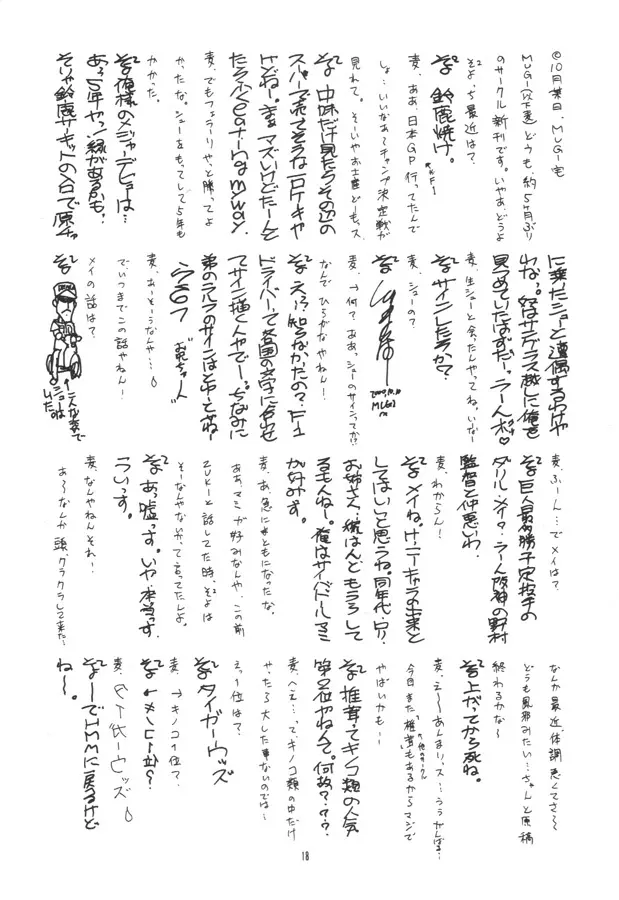 ©10月某日、MUGI宅
MUGI(以下麦) どうも、約5ヶ月ぶり
のサークル新刊です。いやぁ、どうよ
そよ²、最近は？
そ² 鈴鹿焼け。
麦、ああ、日本GP行ってたんで
しょ…いいなあ~チャンプ決定戦が
見れて。そういやお土産ども。ス
そ² 中味だけ見たらその辺の
スーパーで売ってそうな一口ケーキや
けどねー。まぁマズいけどたーんと
たらふくeating my way.
麦、でもフェラーリやっと勝ってよ
かったな。シューをもってして5年も
かかった。
そ² 俺様のメジャーデビューは…
あっ5年やン！縁があるかも。
そりゃ鈴鹿サーキットの入口で原チャ
に乗ったシューと遭遇するわけや
わな。奴はサングラス越しに俺を
見つめていたはずだ。うーん♡
麦、生シューと会ったんやってね。いいなー
そ² サインしたろか？
麦、シューの？
そ²
2000.10.10
MUGI
麦、→何？ああっ、シューのサインってか？！
なんでひらがなやねん！
そ² えっ？知らなかったの？F-1
ドライバーって各国の文字に合わせ
てサイン描くんやでー。ちなみに
弟のラルフのサインはこうやどねー
らるふ お兄ちゃーん
麦、あーそーうなんや…
で、いつまでこの話やねん！
メイの話は？
そ²
麦、ふーん…でメイは？
そ² 巨人最多勝予定投手の
ダリル・メイ？うーん阪神の野村
監督と仲悪いわ。
麦、わからん！
そ² メイね。けニーキャラの出来と
してはいいと思うね。同年代・ロリ・
お姉さん・娘はんどもうろして
るもんねー。俺はサイバドールマミ
が好みす。
麦、あ、急にまともになったな。
ああ、マミが好みなんや、この前
ZUKEと話してた時、そよは
そーなんやないかって言ってたんよ。
そ² あっ嘘っす。いや本当っす。
ういっす。
麦、なんやねんそれー！
あ~なんか頭、クラクラして来た…
なんか最近、体調悪くてさ~
どうも風邪みたい…ちゃんと原稿
終わるかな~
そ² 上がってから死ね。
麦、え~あんまりッス…ううがんばる…
今日また“椎茸”もあるからマジで
やばいかも…
そ² 椎茸ってキノコ類の人気
第2位やねんて。何故？？？
麦、へえ…って、キノコ類の中だけ
やったら大した事ないのでは~
えっ、1位は？
そ² タイガーウッズ
麦、→キノコ1位？
麦、
そ² ーでHMMに戻るけど
ね~。
18